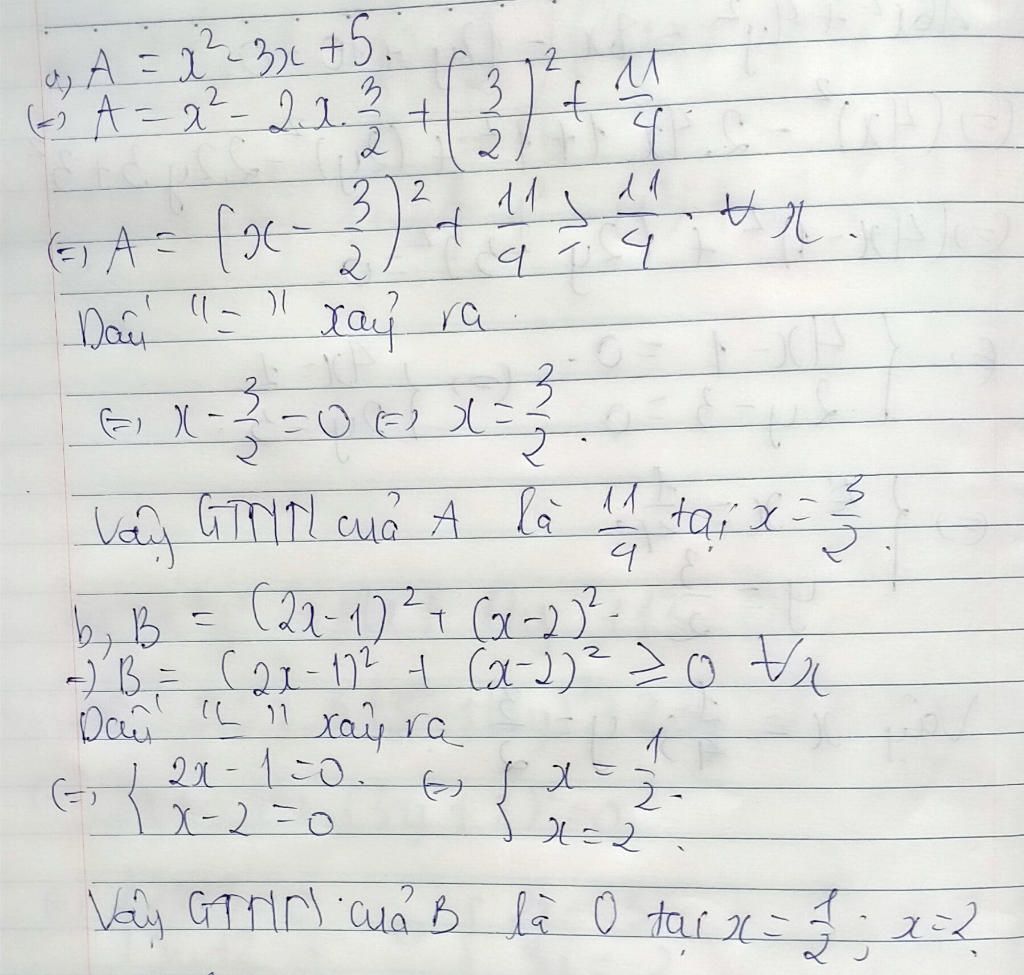 a, A = x² - 3x + 5.
(=) A = x² - 2.x.3/2 + (3/2)² + 11/4.
(=) A = (x - 3/2)² + 11/4 ≥ 11/4. ∀x.
Dấu "=" xảy ra.
(=) x - 3/2 = 0 (=) x = 3/2.
Vậy GTNN của A là 11/4 tại x = 3/2.
b, B = (2x-1)² + (x-2)².
=) B = (2x-1)² + (x-2)² ≥ 0 ∀x
Dấu "=" xảy ra
(=) { 2x - 1 = 0. (=) { x = 1/2.
x - 2 = 0 x = 2.
Vậy GTNN của B là 0 tại x = 1/2; x = 2